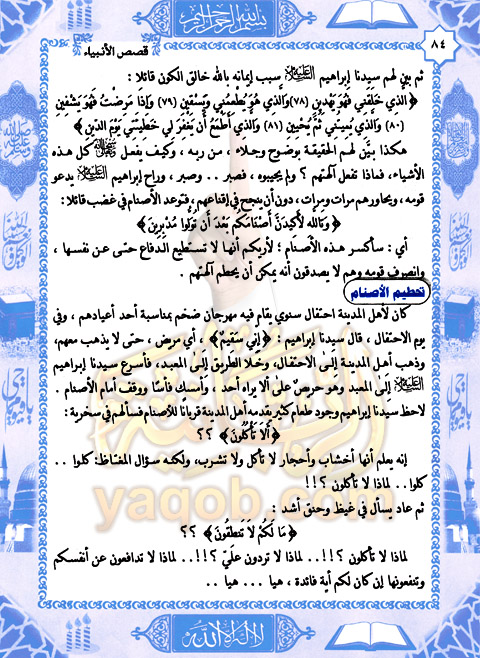 بسم الله الرحمن الرحيم
٨٤
قصص الأنبياء
ثم بين لهم سيدنا إبراهيم عليه السلام سبب إيمانه بالله خالق الكون قائلا :
﴿الذي خلقني فهو يهدين (٧٨) والذي هو يطعمني ويسقين (٧٩) وإذا مرضت فهو يشفين
(٨٠) والذي يميتني ثم يحيين (٨١) والذي أطمع أن يغفر لي خطيئتي يوم الدين﴾
هكذا بيَّن لهم الحقيقة بوضوح وجلاء ، من ربه ، وكيف يفعل كل هذه
الأشياء ، فماذا تفعل آلهتهم ؟ ولم يجيبوه ، فصبر .. وصبر ، وراح إبراهيم عليه السلام يدعو
قومه ، ويحاورهم مرات ومرات ، دون أن ينجح في إقناعهم ، فتوعد الأصنام في غضب قائلا :
﴿وَتَاللَّهِ لَأَكِيدَنَّ أَصْنَامَكُم بَعْدَ أَن تُوَلُّوا مُدْبِرِينَ﴾
أي : سأكسر هذه الأصنام ؛ لأريكم أنها لا تستطيع الدفاع حتى عن نفسها ،
وانصرف قومه وهم لا يصدقون أنه يمكن أن يحطم آلهتهم .
تحطيم الأصنام
كان لأهل المدينة احتفال سنوي يقام فيه مهرجان ضخم بمناسبة أحد أعيادهم ، وفي
يوم الاحتفال ، قال سيدنا إبراهيم : ﴿إِنِّي سَقِيمٌ﴾ ، أي مريض ، حتى لا يذهب معهم ،
وذهب أهل المدينة إلى الاحتفال، وخلا الطريق إلى المعبد ، فأسرع سيدنا إبراهيم
عليه السلام إلى المعبد وهو حريص على ألا يراه أحد ، وأمسك فأسًا ووقف أمام الأصنام .
لاحظ سيدنا إبراهيم وجود طعام كثير يقدمه أهل المدينة قربانا للأصنام فسألهم في سخرية :
﴿أَلَا تَأْكُلُونَ﴾ ؟؟
إنه يعلم أنها أخشاب وأحجار لا تأكل ولا تشرب، ولكنه سؤال المغتاظ: كلوا ..
كلوا.. لماذا لا تأكلون ؟!!
ثم عاد يسأل في غيظ وحنق أشد :
﴿مَا لَكُمْ لَا تَنطِقُونَ﴾ ؟؟
لماذا لا تأكلون ؟!!.. لماذا لا تردون عليّ ؟!!.. لماذا لا تدافعون عن أنفسكم
وتنفعونها إن كان لكم أية فائدة ، هيا ... هيا ..
yaqob.com
لا إله إلا الله